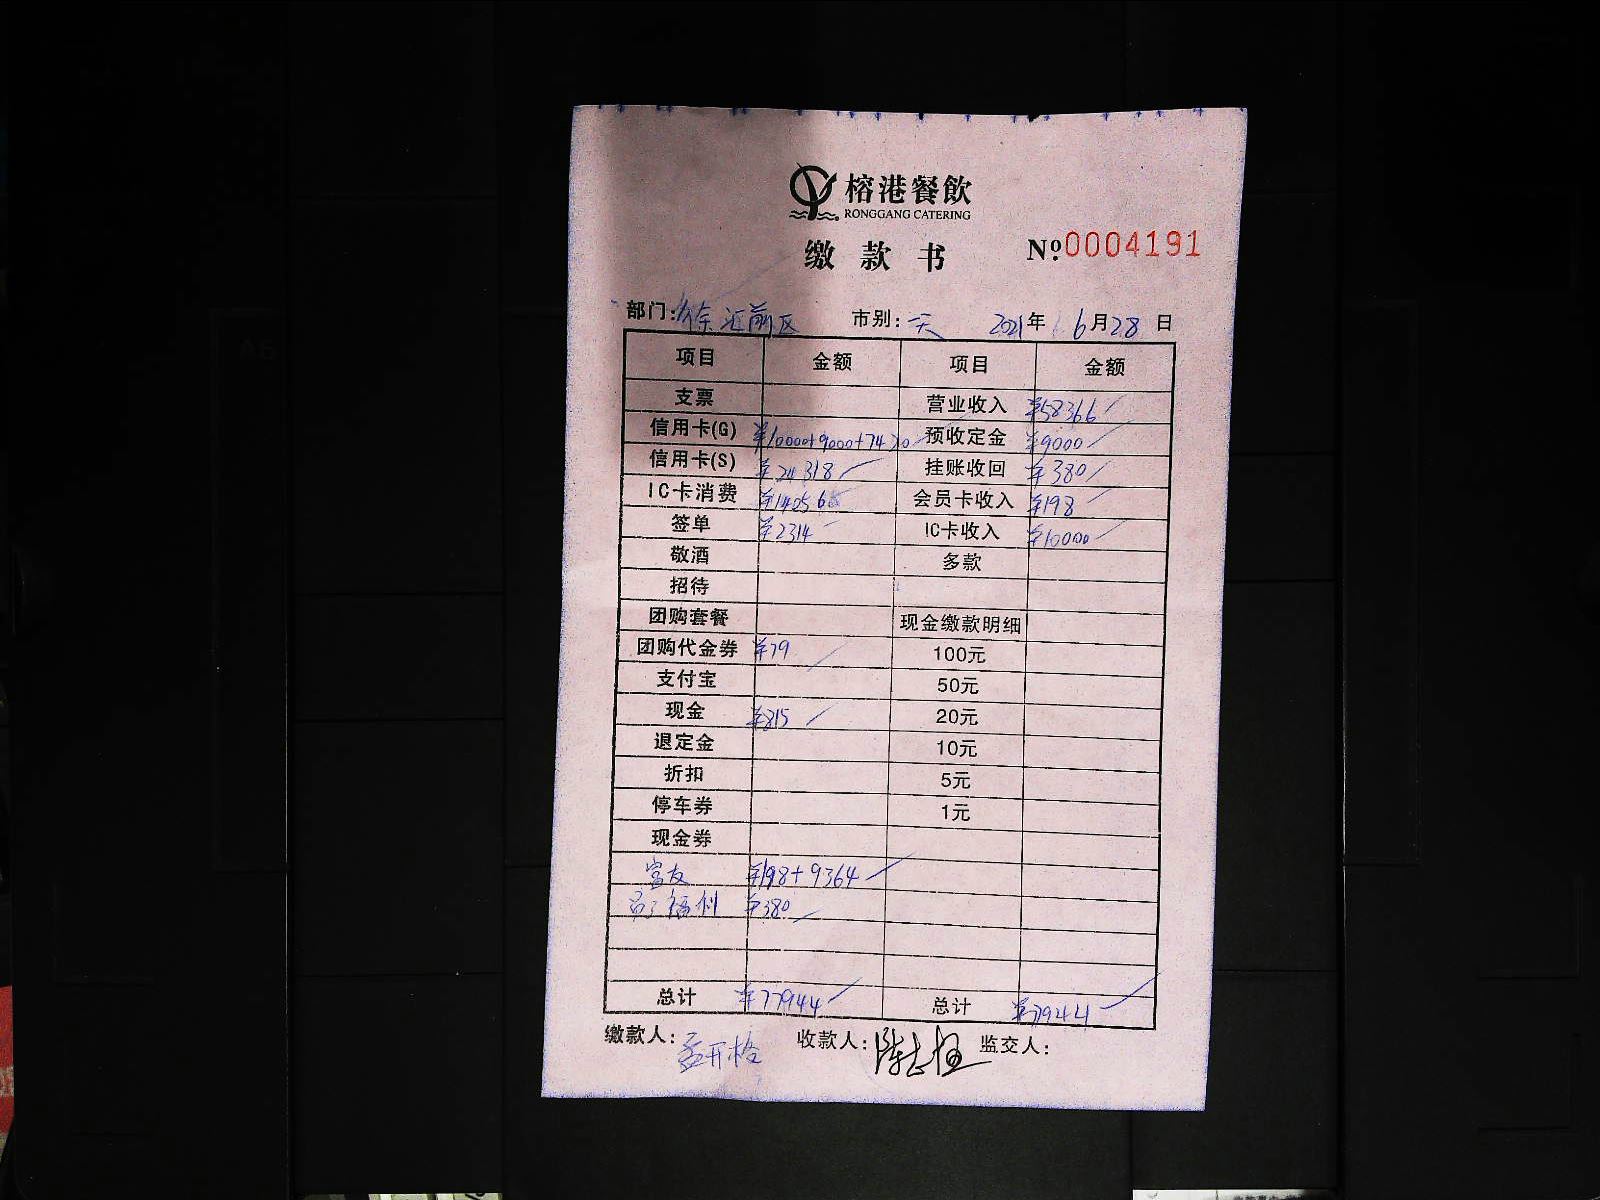 榕港餐飲
RONGGANG CATERING
缴款书 №0004191
部门:徐汇前区 市别:天 2021年6月28日
项目 金额 项目 金额
支票 营业收入 ¥58366
信用卡(G) ¥10000+9000+7420 预收定金 ¥9000
信用卡(S) ¥24318 挂账收回 ¥380
IC卡消费 ¥14056 会员卡收入 ¥198
签单 ¥2314 IC卡收入 ¥10000
敬酒 多款
招待
团购套餐 现金缴款明细
团购代金券 ¥79 100元
支付宝 50元
现金 ¥815 20元
退定金 10元
折扣 5元
停车券 1元
现金券
富友 ¥198+9364
员工福利 ¥380
总计 ¥77944 总计 ¥77944
缴款人:孟开格 收款人: 监交人: